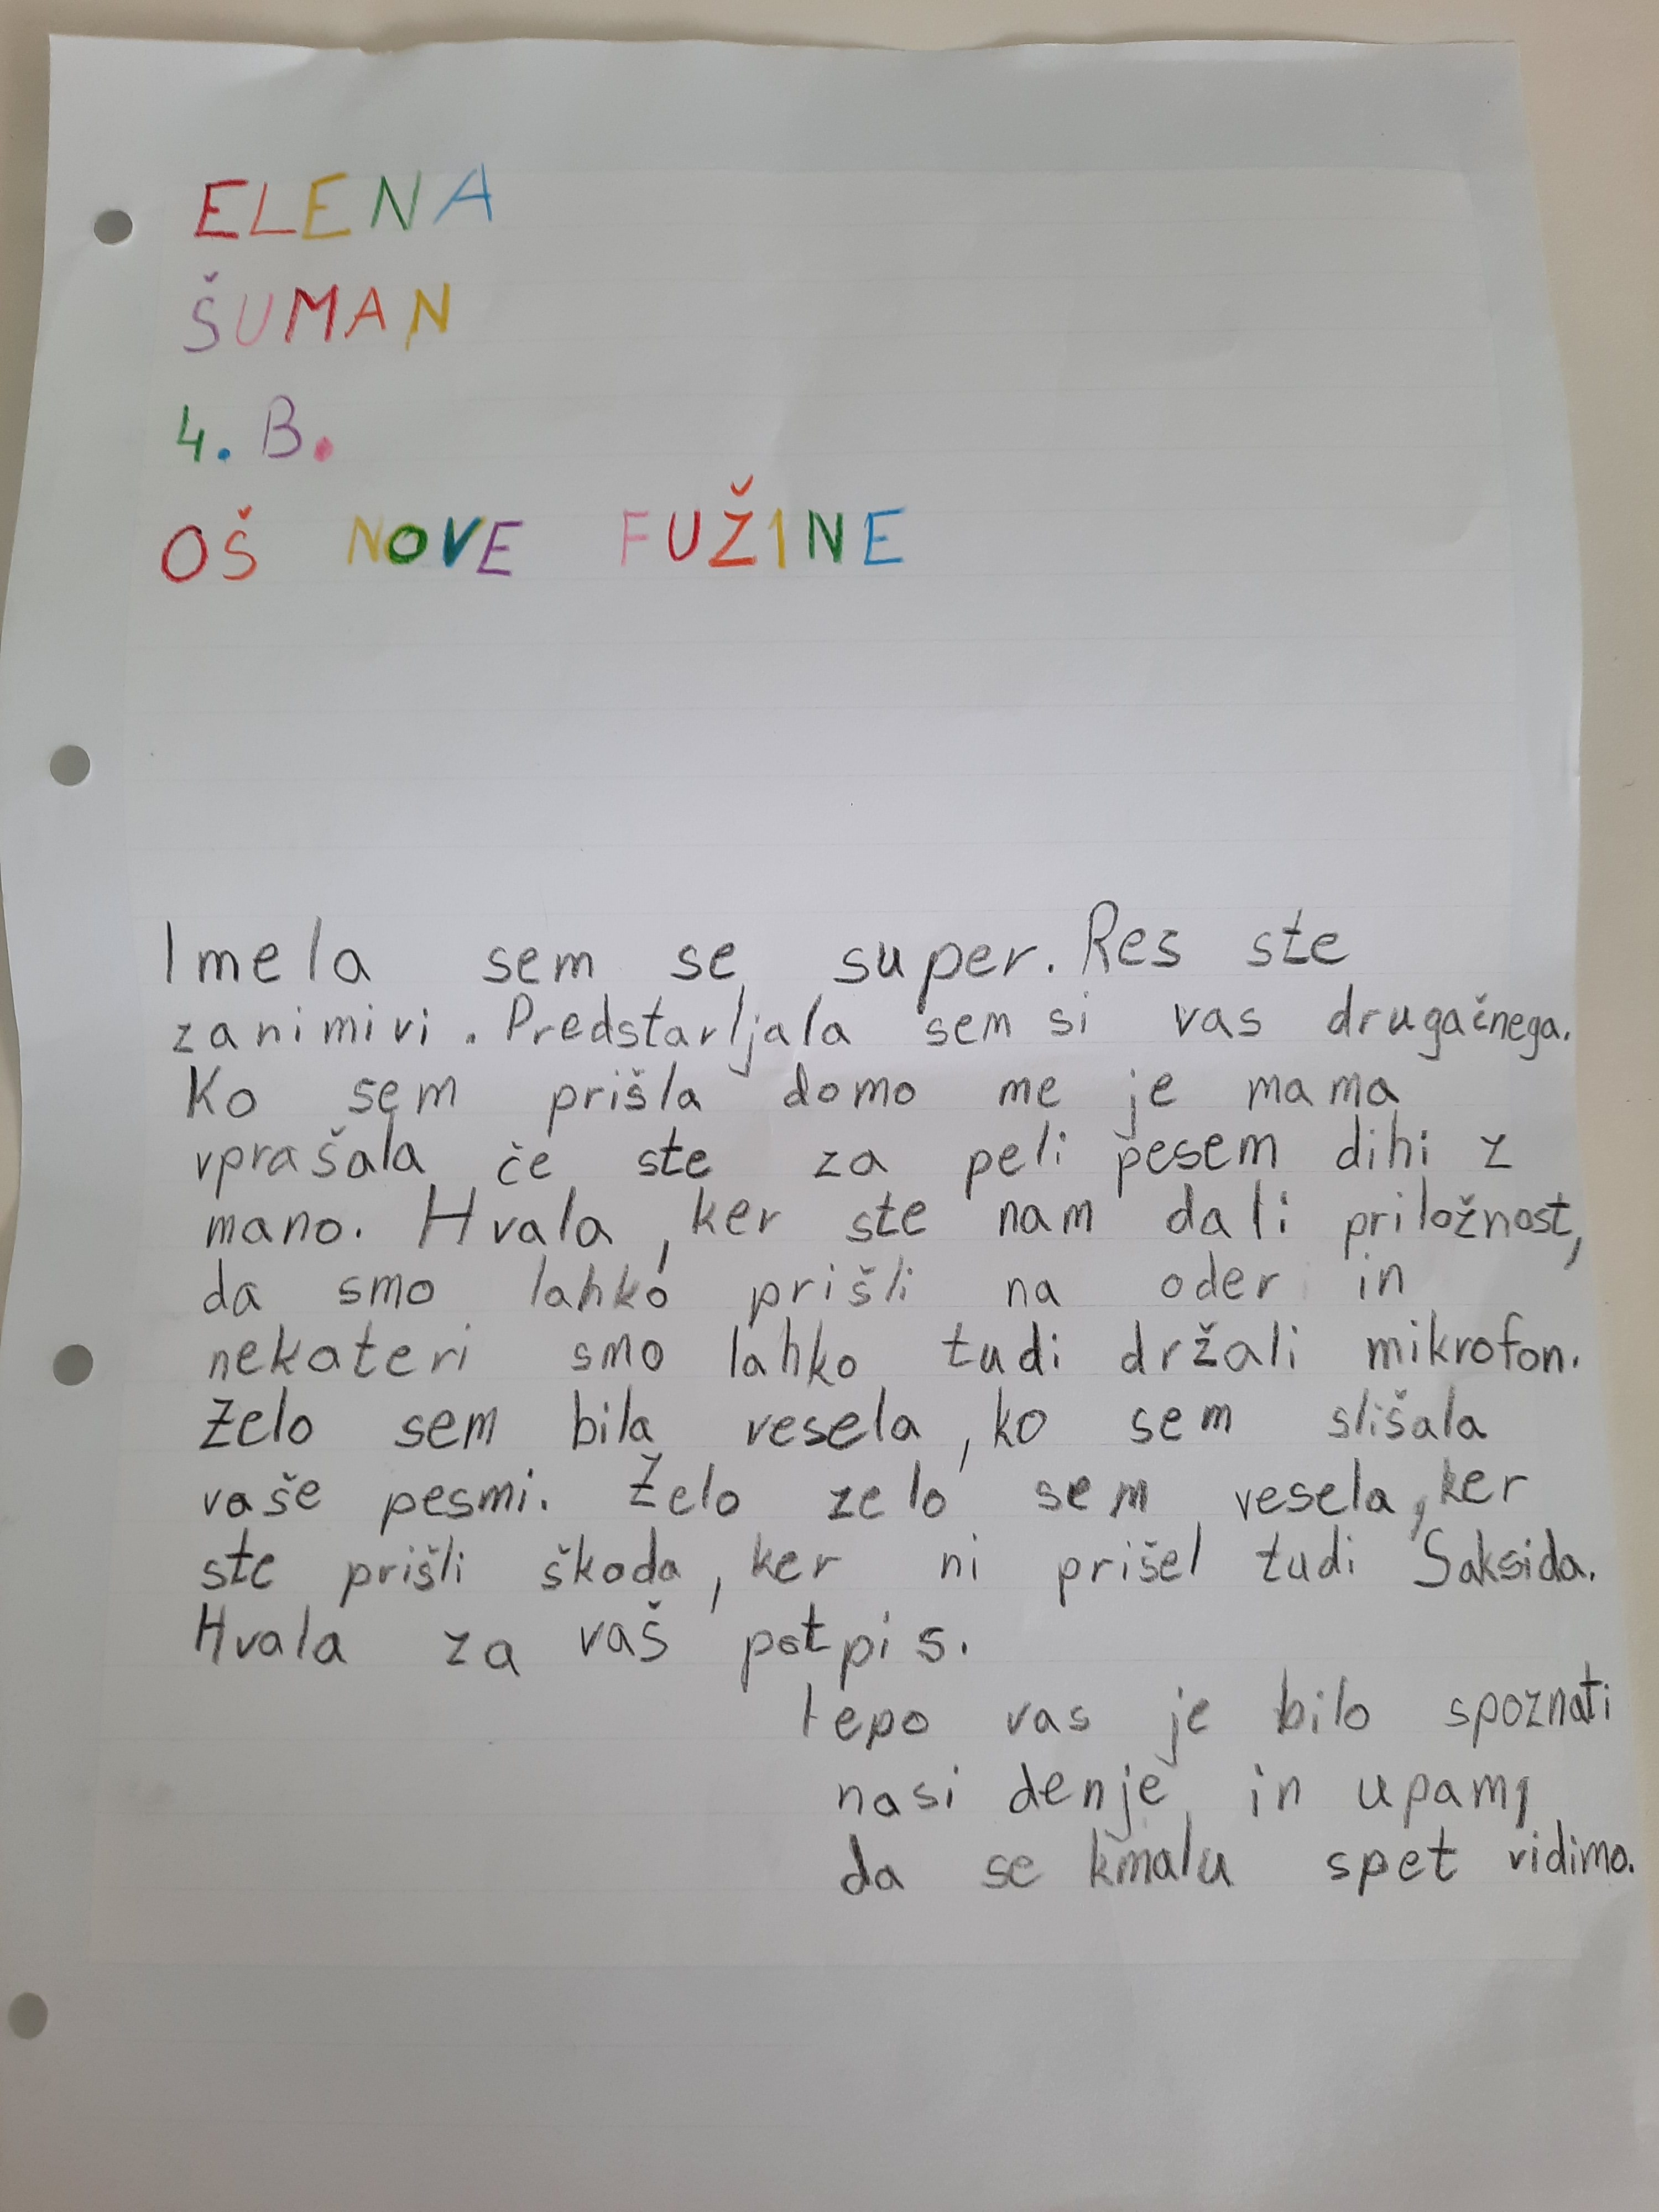 ELENA
ŠUMAN
4. B.
OŠ NOVE FUŽINE
Imela sem se super. Res ste
zanimivi. Predstavljala sem si vas drugačnega.
Ko sem prišla domo me je mama
vprašala če ste za peli pesem dihi z
mano. Hvala, ker ste nam dali priložnost,
da smo lahko prišli na oder in
nekateri smo lahko tudi držali mikrofon.
Zelo sem bila vesela, ko sem slišala
vaše pesmi. Zelo zelo sem vesela, ker
ste prišli škoda, ker ni prišel tudi Saksida.
Hvala za vaš potpis.
lepo vas je bilo spoznati
nasi denje in upam,
da se kmalu spet vidimo.